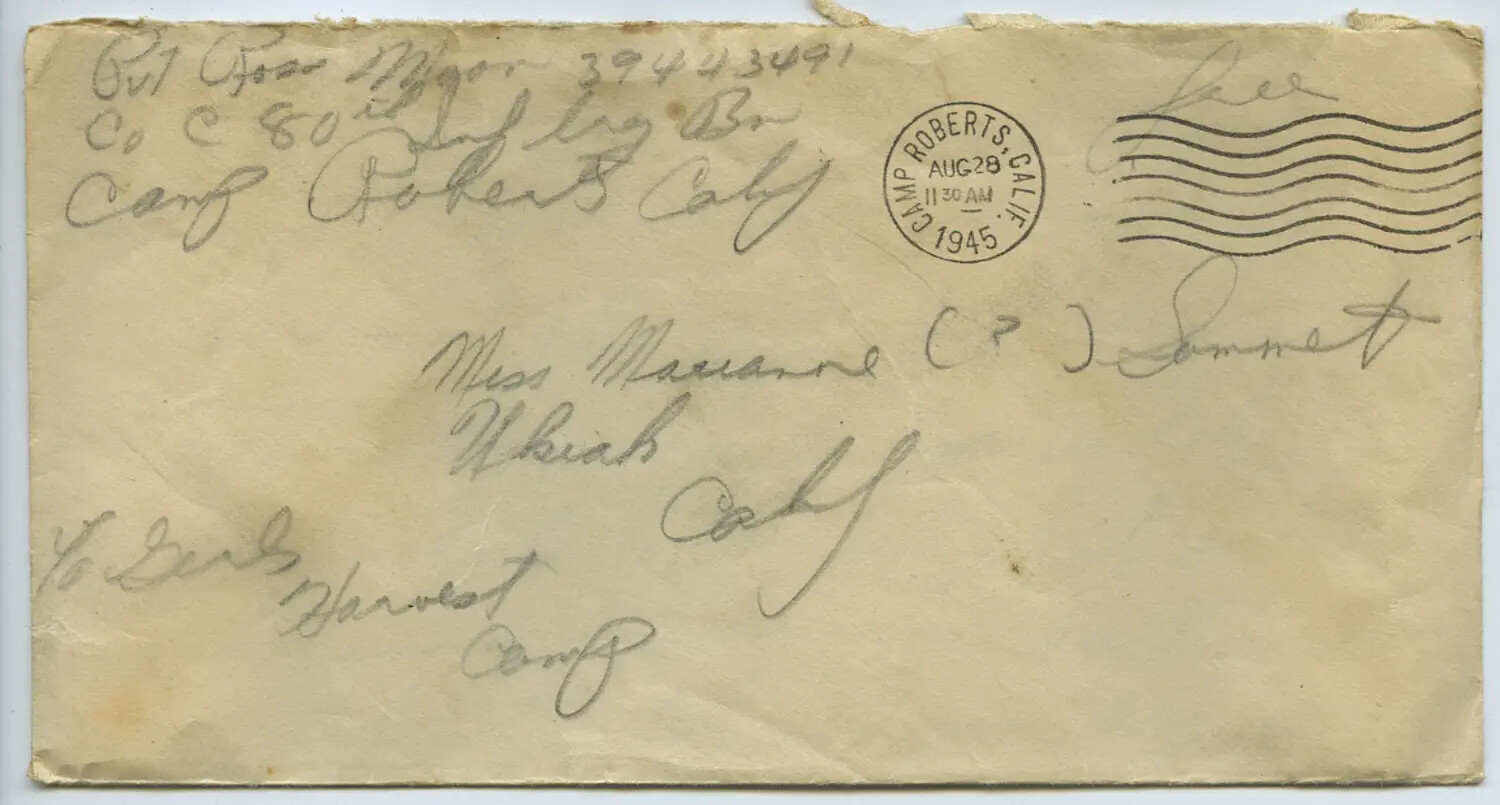 Pvt Ross 39443491
Co C 80th Inf Trg Bn
Camp Roberts Calif
Free
CAMP ROBERTS, CALIF.
AUG 28
11 30 AM
1945
Miss Marianne (?) Sommet
Ukiah
Calif
c/o Girls
Harvest
Camp